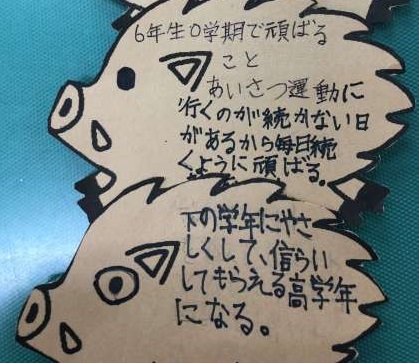 6年生0学期で頑ばる
こと
あいさつ運動に
行くのが続かない日
があるから毎日続
くように頑ばる。
下の学年にやさ
しくして、信らい
してもらえる高学年
になる。